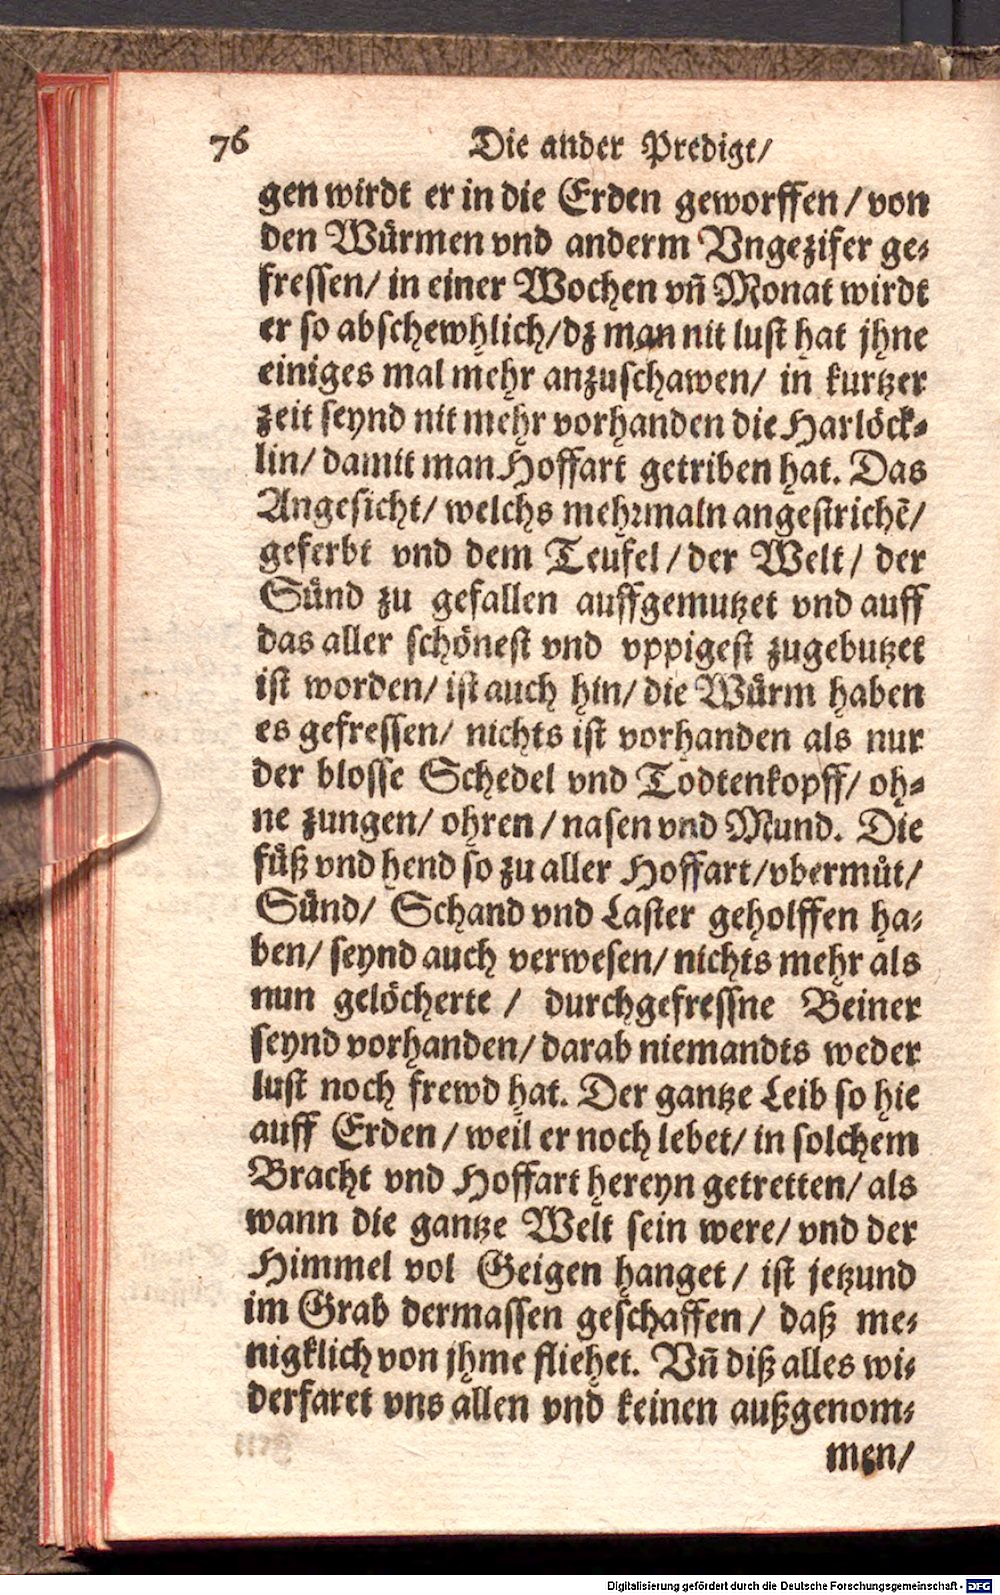 76 Die ander Predigt/
gen wirdt er in die Erden geworffen / von
den Würmen vnd anderm Vngezifer ge⸗
fressen/ in einer Wochen vñ Monat wirdt
er so abschewhlich/dz man nit lust hat jhne
einiges mal mehr anzuschawen/ in kurtzer
zeit seynd nit mehr vorhanden die Harlöck⸗
lin/ damit man Hoffart getriben hat. Das
Angesicht/ welchs mehrmaln angestrichẽ/
geferbt vnd dem Teufel / der Welt / der
Sünd zu gefallen auffgemutzet vnd auff
das aller schönest vnd vppigest zugebutzet
ist worden/ ist auch hin/ die Würm haben
es gefressen/ nichts ist vorhanden als nur
der blosse Schedel vnd Todtenkopff/ oh⸗
ne zungen/ ohren / nasen vnd Mund. Die
füß vnd hend so zu aller Hoffart/vbermůt/
Sünd/ Schand vnd Laster geholffen ha⸗
ben/ seynd auch verwesen/ nichts mehr als
nun gelöcherte / durchgefressne Beiner
seynd vorhanden/ darab niemandts weder
lust noch frewd hat. Der gantze Leib so hie
auff Erden / weil er noch lebet/ in solchem
Bracht vnd Hoffart hereyn getretten/ als
wann die gantze Welt sein were/ vnd der
Himmel vol Geigen hanget / ist jetzund
im Grab dermassen geschaffen / daß me⸗
nigklich von jhme fliehet. Vñ diß alles wi⸗
derfaret vns allen vnd keinen außgenom⸗
men/
Digitalisierung gefördert durch die Deutsche Forschungsgemeinschaft - DFG